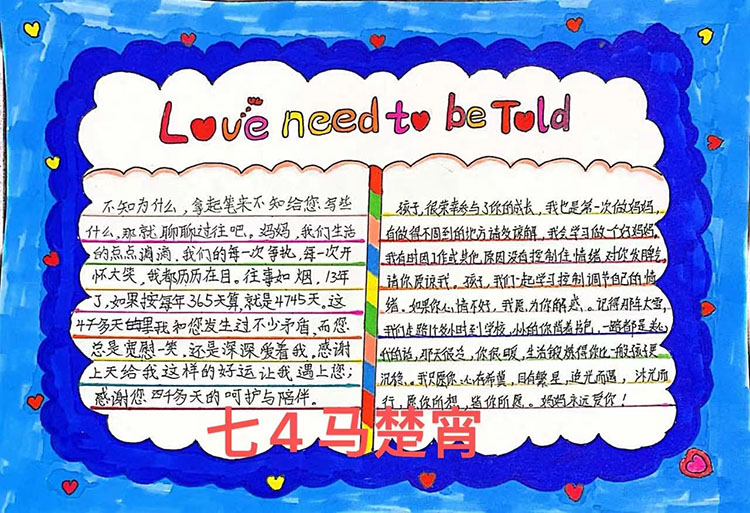 Love need to be Told
不知为什么，拿起笔来不知给您写些
什么，那就聊聊过往吧，妈妈，我们生活
的点点滴滴，我们的每一次争执，每一次开
怀大笑，我都历历在目。往事如烟，13年
了，如果按每年365天算，就是4745天。这
4千多天里我和您发生过不少矛盾，而您
总是宽慰一笑，还是深深爱着我，感谢
上天给我这样的好运让我遇上您；
感谢您4千多天的呵护与陪伴。
孩子，很荣幸参与了你的成长，我也是第一次做妈妈，
有做得不周到的地方请多谅解，我会学习做一个好妈妈，
我有时因工作或其他原因没有控制住情绪，对你发脾气
请你原谅我。孩子，我们一起学习控制调节自己的情
绪。如果你心情不好，我愿为你解惑。记得那年大雪，
我们走路到学校，小小的你背着书包，一路都是
的，那天很冷，你很暖，生活
我只愿你，心存希望，目有繁星，追光而遇，沐光而
行，愿你所想，皆你所愿。妈妈永远爱你！
七4马楚宵